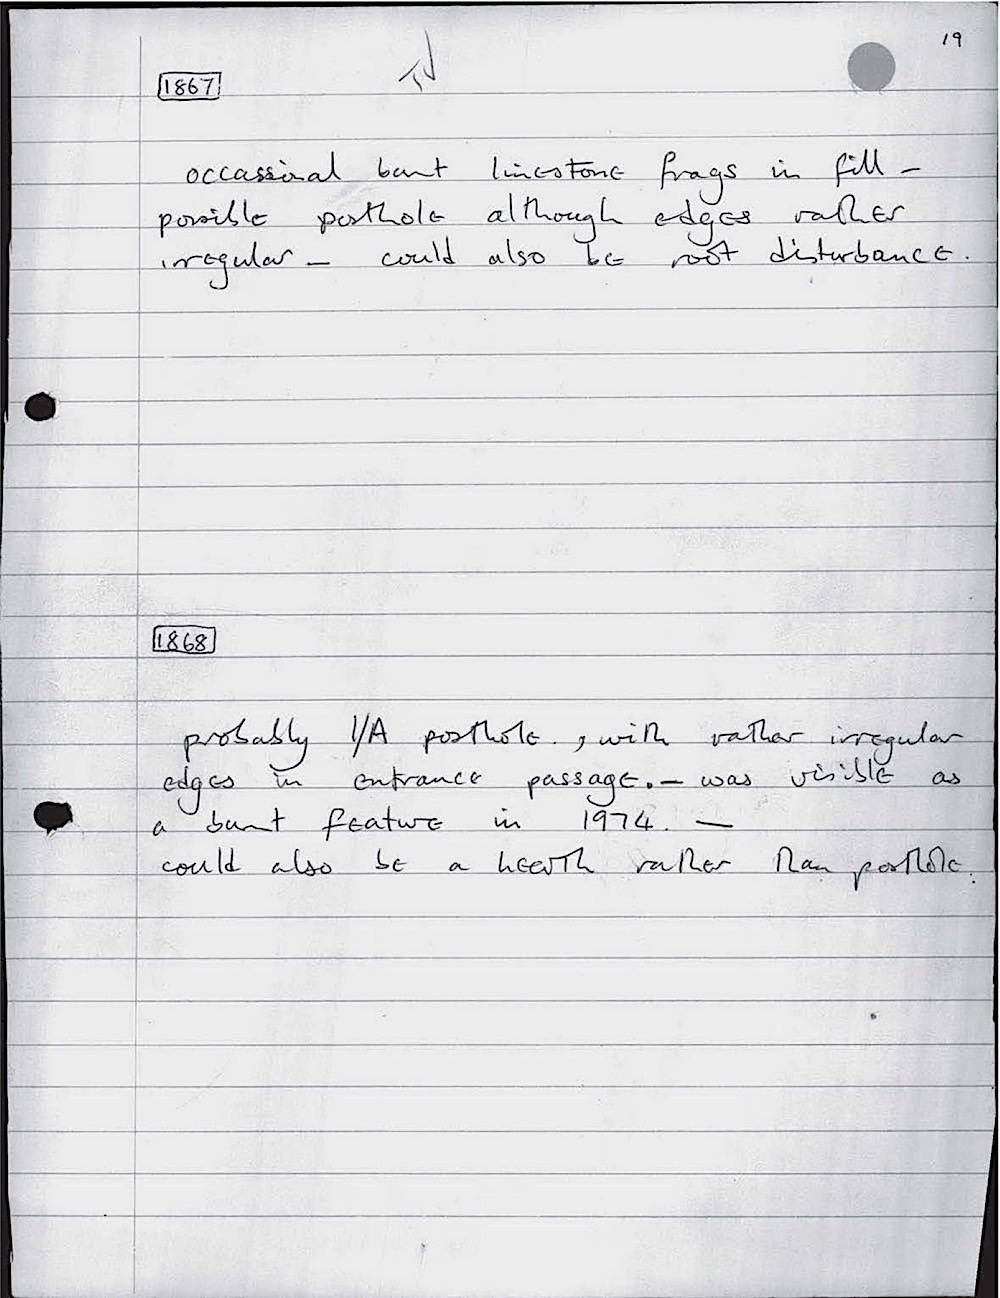 19
1867
occassional burnt limestone frags in fill -
possible posthole although edges rather
irregular - could also be root disturbance.
1868
probably I/A posthole, with rather irregular
edges in entrance passage. - was visible as
a burnt feature in 1974. -
could also be a hearth rather than posthole.